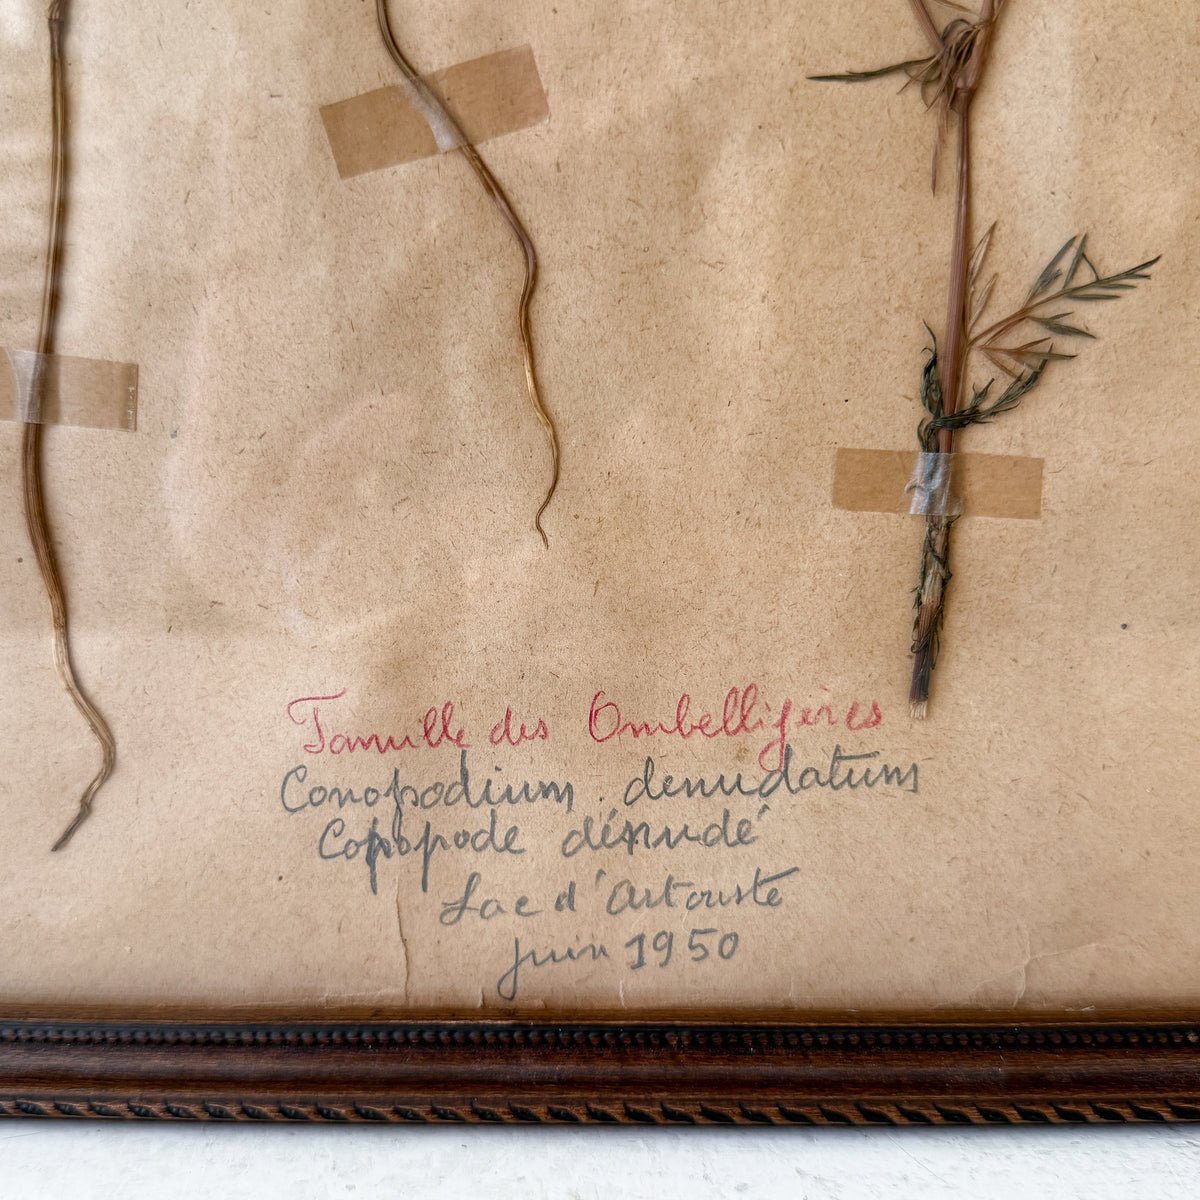 Famille des Ombellifères
Conopodium denudatum
Conopode dénudé
Lac d'Artouste
juin 1950